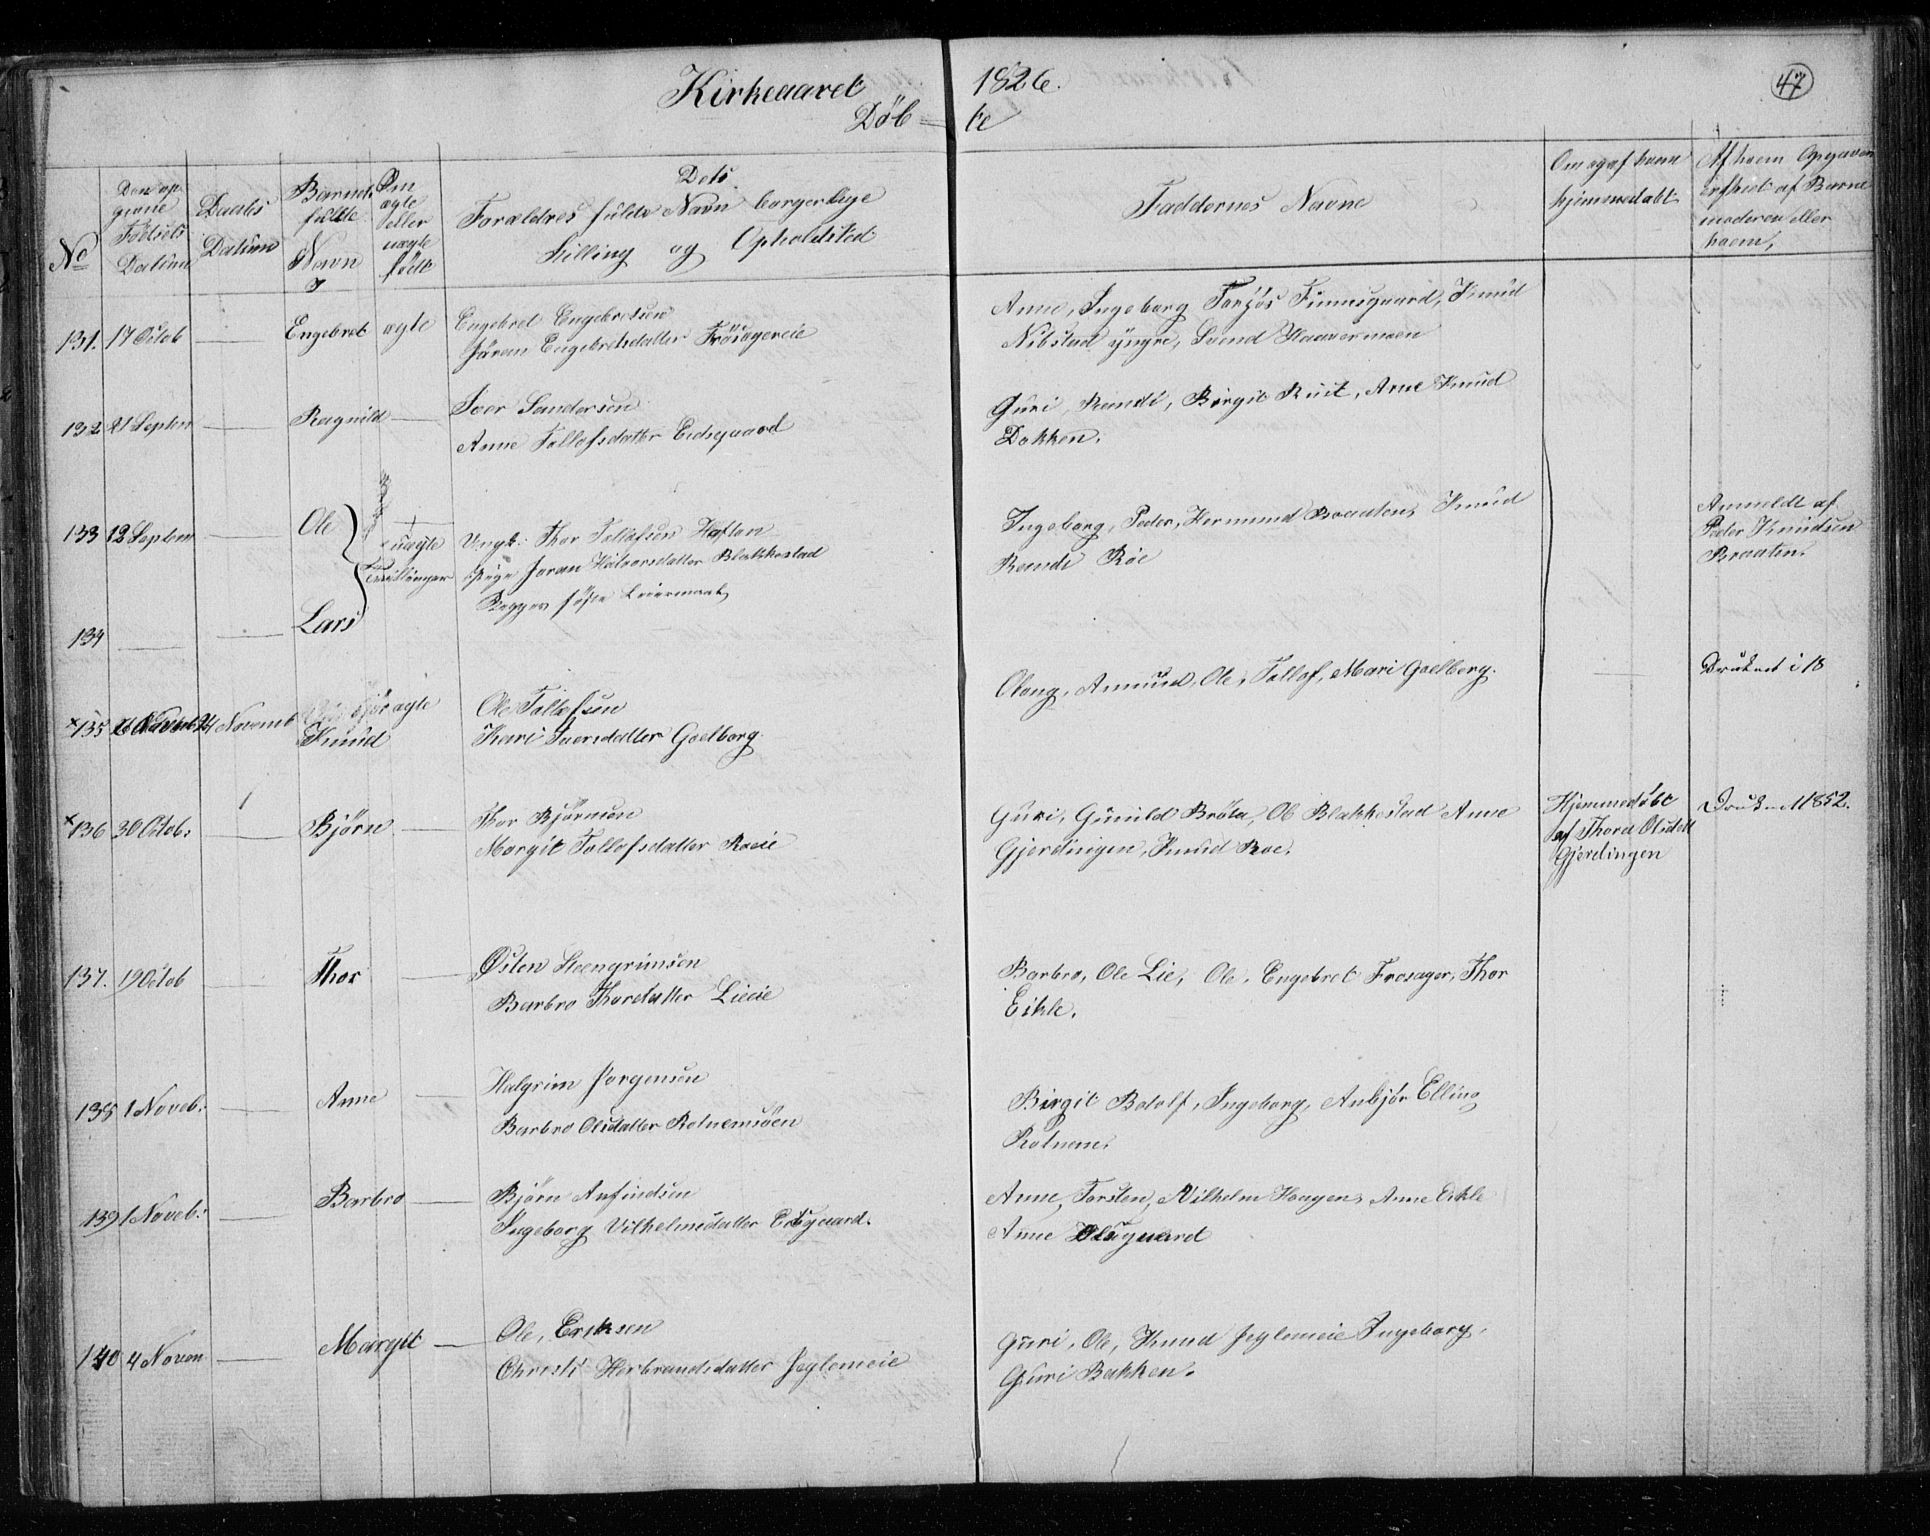 Kirkeaaret 1826.
Døb = te
47
No
Den op
givne
Fødsels
Datum
Daabs
Datum
Barnets
fulde
Navn
Om
ægte
eller
uægte
født
Dets
Forældres fulde Navn borgerlige
Stilling og Opholdsted
Faddernes Navne
Om og af hvem
hjemmedøbt
Af hvem Opgaven
erfhvet af Barne
moderen eller
hvem,
131. 17 Octob Engebret ægte
Engebret Engebretsen
Jøran Engebretsdatter Frøsagereie
Anne, Ingeborg Torjøs Finnesgaard, Knud
Nibstad yngre, Svend Haavermoen
132 21 Septem Ragnild
Iver Sandersen
Anne Tollefsdatter Eidsgaard
Guri, Randi, Birgit Ruit, Arne Knud
Dokken.
133 12 Septem Ole
uægte
Tvillinger
Ungk: Thor Tollefsen Haftan
Pige Joran Halvorsdatter Blakkestad
Begges første Leiermaal
Ingeborg, Peder, Hermund Braaten, Knud
Randi Röe
Anmeldt af
Peder Knudsen
Braaten.
134 Lars
× 135 24 Novemb ægte
Knud
Ole Tollefsen
Kari Iversdatter Golberg.
Olong, Amund, Ole, Tollef, Mari Golberg.
Druknet i 18
× 136 30 Octob: Bjørn
Thor Bjørnsen
Margit Tollefsdatter Roeie
Guri, Gunild Brøta, Ole Blakkestad Anne
Gjerdingen, Knud Roe.
Hjemmedøbt
af Thora Olsdatt
Gjerdingen
Drukn 1852.
137. 19 Octob Thor
Østen Steengrimsen
Barbro Thordatter Lieeie
Barbro, Ole Lie, Ole, Engebret Frosager, Thor
Eikle.
138 1 Noveb: Anne
Halgrim Jørgensen
Barbro Olsdatter Rotnemsöen
Birgit Botolf, Ingeborg, Anbjør Elling
Rotnem.
139 1 Noveb: Barbro
Bjørn Anfindsen
Ingeborg Vilhelmsdatter Eidsgaard.
Anne, Torsten, Vilhelm Haugen, Anne Eikle
Anne
140 4 Novem Margit
Ole, Eriksen
Christi Herbrandsdatter Jeglemeie
Guri, Ole, Knud Jeglemeie Ingeborg,
Guri Bakken.